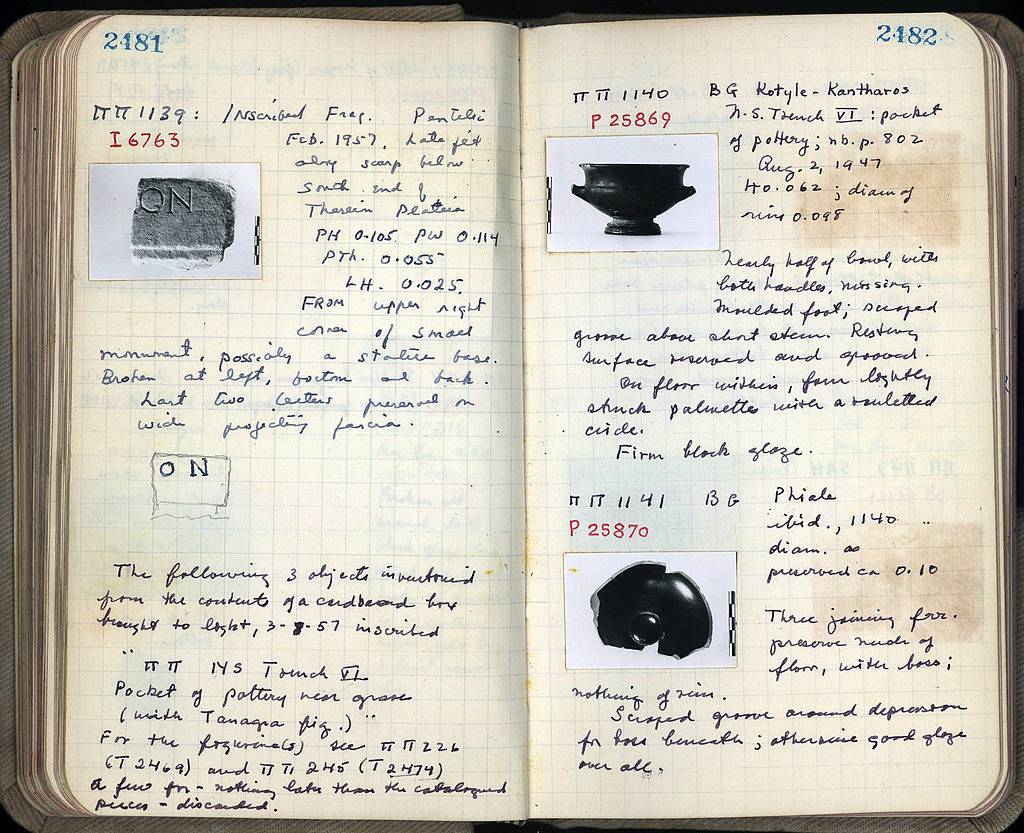 2481
ΠΠ 1139: Inscribed Frag. Pentelic
I 6763
Feb. 1957. Late fill
along scarp below
South end of
Therein Plateia
PH 0.105. PW 0.114
PTh. 0.055
LH. 0.025.
From upper right
corner of small
monument, possibly a statue base.
Broken at left, bottom and back.
Last two letters preserved on
wide projecting fascia.
ON
The following 3 objects inventoried
from the contents of a cardboard box
brought to light, 3-8-57 inscribed
" ΠΠ NS Trench VI
Pocket of pottery near grave
(with Tanagra fig.) "
For the figurine(s) see ΠΠ 226
(T 2469) and ΠΠ 245 (T 2474)
A few frr - nothing later than the catalogued
pieces - discarded.
2482
ΠΠ 1140 BG Kotyle-Kantharos
P 25869
N.S. Trench VI: pocket
of pottery; nb. p. 802
Aug. 2, 1947
H 0.062; diam of
rim 0.098
Nearly half of bowl, with
both handles, missing.
Moulded foot; scraped
groove above short stem. Resting
surface reserved and grooved.
On floor within, four lightly
struck palmettes with a rouletted
circle.
Firm black glaze.
ΠΠ 1141 BG Phiale
P 25870
ibid., 1140
diam. as
preserved ca 0.10
Three joining frr.
preserve much of
floor, with boss;
nothing of rim.
Scraped groove around depression
for boss beneath; otherwise good glaze
over all.